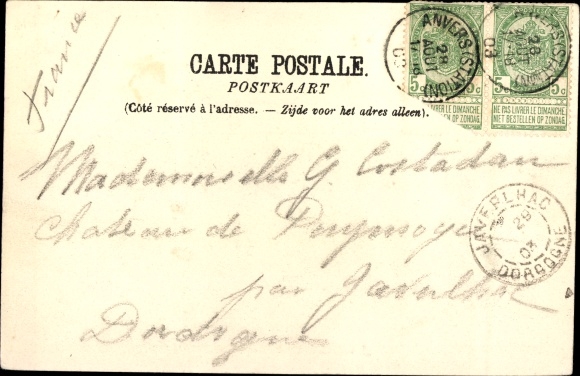 France
CARTE POSTALE.
POSTKAART
(Côté réservé à l'adresse. — Zijde voor het adres alleen).
ANVERS (STATION)
28
AOUT
03
ANVERS (STATION)
28
AOUT
17-18
03
5c 5c 5c
NE PAS LIVRER LE DIMANCHE
NIET BESTELLEN OP ZONDAG
NE PAS LIVRER LE DIMANCHE
NIET BESTELLEN OP ZONDAG
Mademoiselle G Costadau
Chateau de Puymoye
par Javerlhac
Dordogne
JAVERLHAC
29
03
DORDOGNE